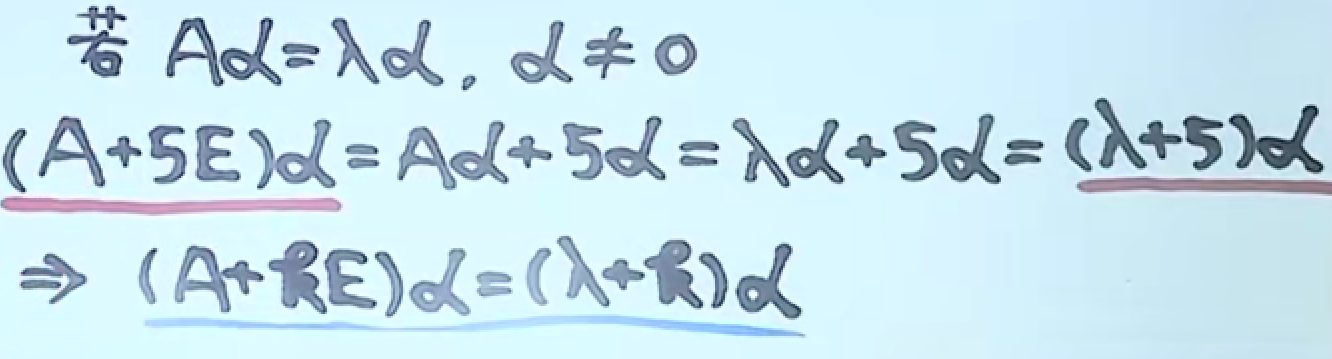 若 Aα=λα, α≠0
(A+5E)α=Aα+5α=λα+5α=(λ+5)α
⇒ (A+kE)α=(λ+k)α